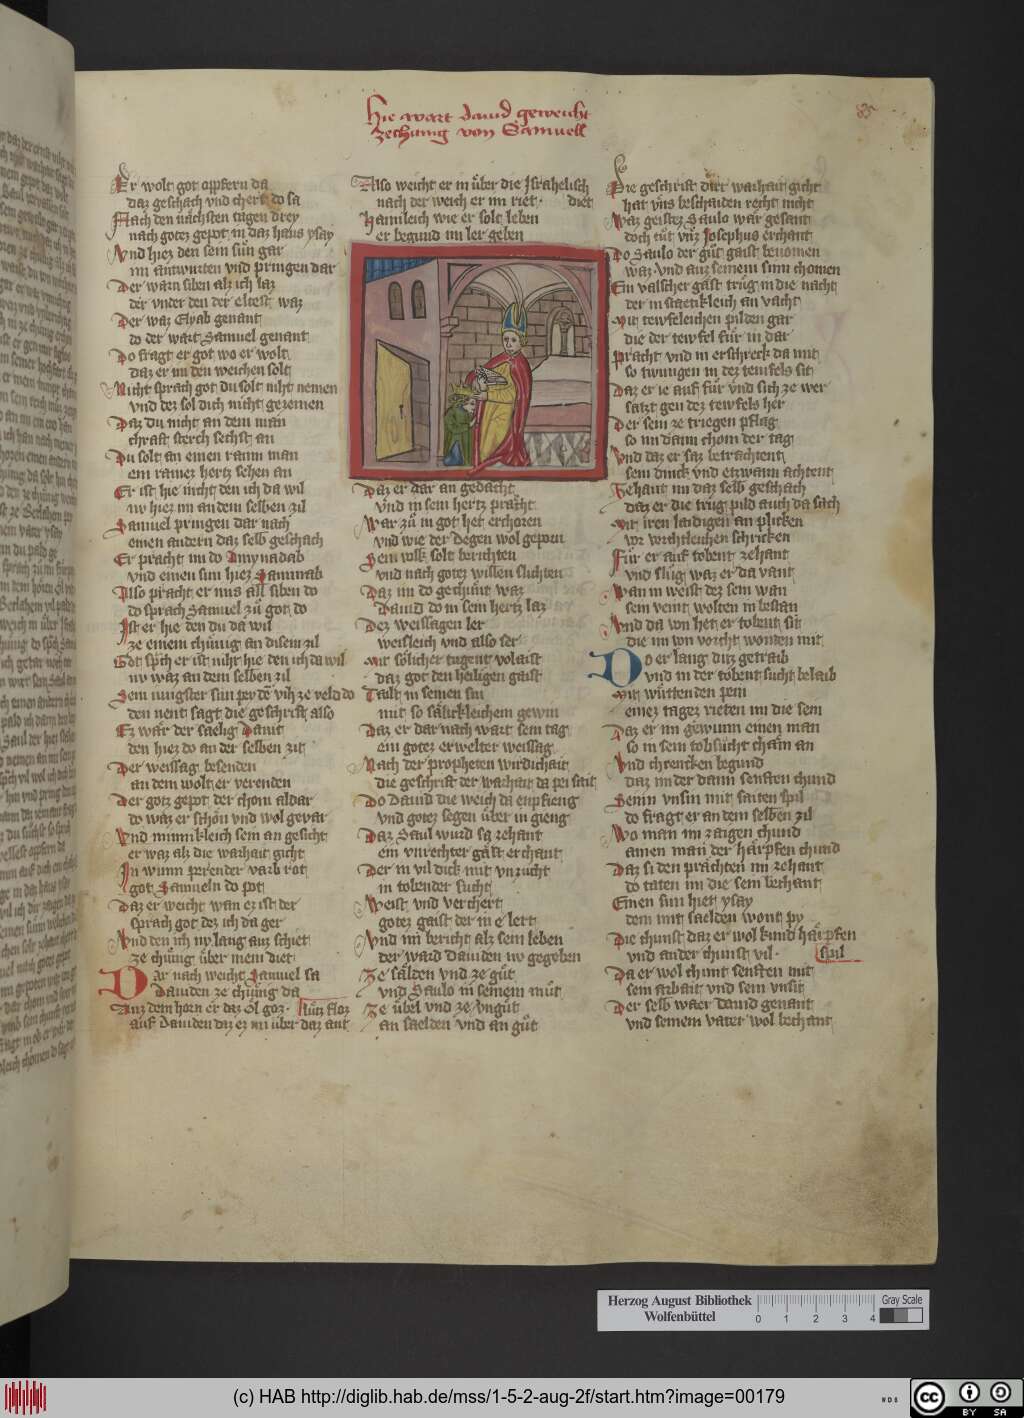 Hie wart dauid geweicht
ze chung von Samuell
85
Er wolt got oppfern da
daz geschach vnd chert do sa
Nach den nachsten tagen drey
nach gotez gepot in daz haus ysay
Vnd hiez den sein sun gar
im antwurten vnd pringen dar
Der warn siben alz ich laz
der vnder den der eltest waz
Der waz Elyab genant
do der wart Samuel genant
Do fragt er got wo er wolt
daz er im den weichen solt
Nicht sprach got du solt niht nemen
vnd dez sol dich nicht gezemen
Daz du nicht an dem man
chraft sterch sechst an
Du solt an einen rainn man
ein rainez hertz sehen an
Er ist hie nicht den ich da wil
nv hiez im an dem selben zil
Samuel pringen dar nach
einen andern daz selb geschach
Er pracht im do Amynadab
vnd einen sun hiez Sammab
Also pracht er ims all siben do
do sprach Samuel zu got do
Ist er hie den du da wil
ze einem chunig an disem zil
Got sp̄ch er ist niht hie den ich da wil
nv waz an dem selben zil
Sein iungster sun pey dē vih ze veld do
den nent sagt die geschrift also
Ez war der saelig Dauit
den hiez do an der selben zit
Der weissag besenden
an dem wolt er verenden
Der gotz gepot der chom aldar
do waz er schon vnd wol gevar
Vnd minnikleich sein an gesicht
er waz alz die warhait gicht
In wunn perender varb rot
got Samueln do pot
Daz er weicht wan ez ist der
sprach got dez ich da ger
Vnd den ich nv lang auz schiet
ze chung über mein diet
Dar nach weicht Samuel sa
Dauiden ze chung da
Auz dem horn er daz Ol goz
auf Dauiden daz ez im uber daz ant
lütz floz
Also weicht er in über die Israhelisch
nach der weich er im riet diet
Hainleich wie er solt leben
er begund im ler geben
Daz er dar an gedacht
vnd in sein hertz pracht
War zu in got het erchoren
vnd wie der degen wol geporn
Sein volk solt berichten
vnd nach gotez willen slichten
Daz im do gechunt waz
Dauid do in sein hertz laz
Dez weissagen ler
weisleich vnd also ser
Mit solicher tugent volaist
daz got den heiligen gaist
Tailt in seinen sin
mit so sälikleichem gewin
Daz er dar nach wart sein tag
ein gotez erwelter weissag
Nach der propheten wirdichait
die geschrift der warhait da pei sait
Do dauid die weich da enpfieng
vnd gotez segen über in gieng
Daz Saul wurd sa zehant
ein vnrechter gast erchant
Der in vil dick mit vnzucht
in tobender sucht
Weist vnd verchert
gotez gaist der in e lert
Vnd im bericht alz sein leben
der ward dauiden nv gegeben
Ze sälden vnd ze gut
vnd Saulo in seinem mut
Ze übel vnd ze vngut
an saelden vnd an gut
Die geschrift der warhait gicht
hat vns beschaiden recht nicht
Waz geistez Saulo war gesant
doch tut vnz Josephus erchant
Do Saulo der gut gaist benomen
waz vnd auz seinem sinn chomen
Ein valscher gast trug in die nacht
der in staetikleich an vacht
Mit tewfeleichen pilden gar
die der tewfel fur in dar
Pracht vnd in erschreck da mit
so twungen in dez teufels sit
Daz er ie auf für vnd sich ze wer
satzt gen dez tewfels her
Der sein ze triegen pflag
so im dann chom der tag
Vnd daz er saz betrachtent
sein dinck vnd etzwann achtent
Zehant im daz selb geschach
daz er die trug pild auch da sach
Mit iren laidigen an plicken
vor vorchtleichen schricken
Für er auf tobent zehant
vnd slug waz er da vant
Wan in weist dez sein wan
sein veint wolten in bestan
Vnd da von het er tobent sit
die im von vorcht wonden mit
Do er lang ditz getraib
vnd in der tobent sucht belaib
Mit wuttenden pein
einez tagez rieten im die sein
Daz er im gewunn einen man
so in sein tobsucht cham an
Vnd chrencken begund
daz im der dann senften chund
Seinn vnsin mit saiten spil
do fragt er an dem selben zil
Wo man im zaigen chund
ainen man der härpfen chund
Daz si den prachten im zehant
do taten im die sein bechant
Einen sun hiet ysay
dem mit saelden wont py
Die chunst daz er wol kund härpfen
vnd ander chunst vil
spil
Da er wol chunt senften mit
sein arbait vnd sein vnsit
Der selb waer dauid genant
vnd seinem vater wol bechant
Herzog August Bibliothek
Wolfenbüttel
0 1 2 3 4
Gray Scale
(c) HAB http://diglib.hab.de/mss/1-5-2-aug-2f/start.htm?image=00179
WDB
CC BY SA